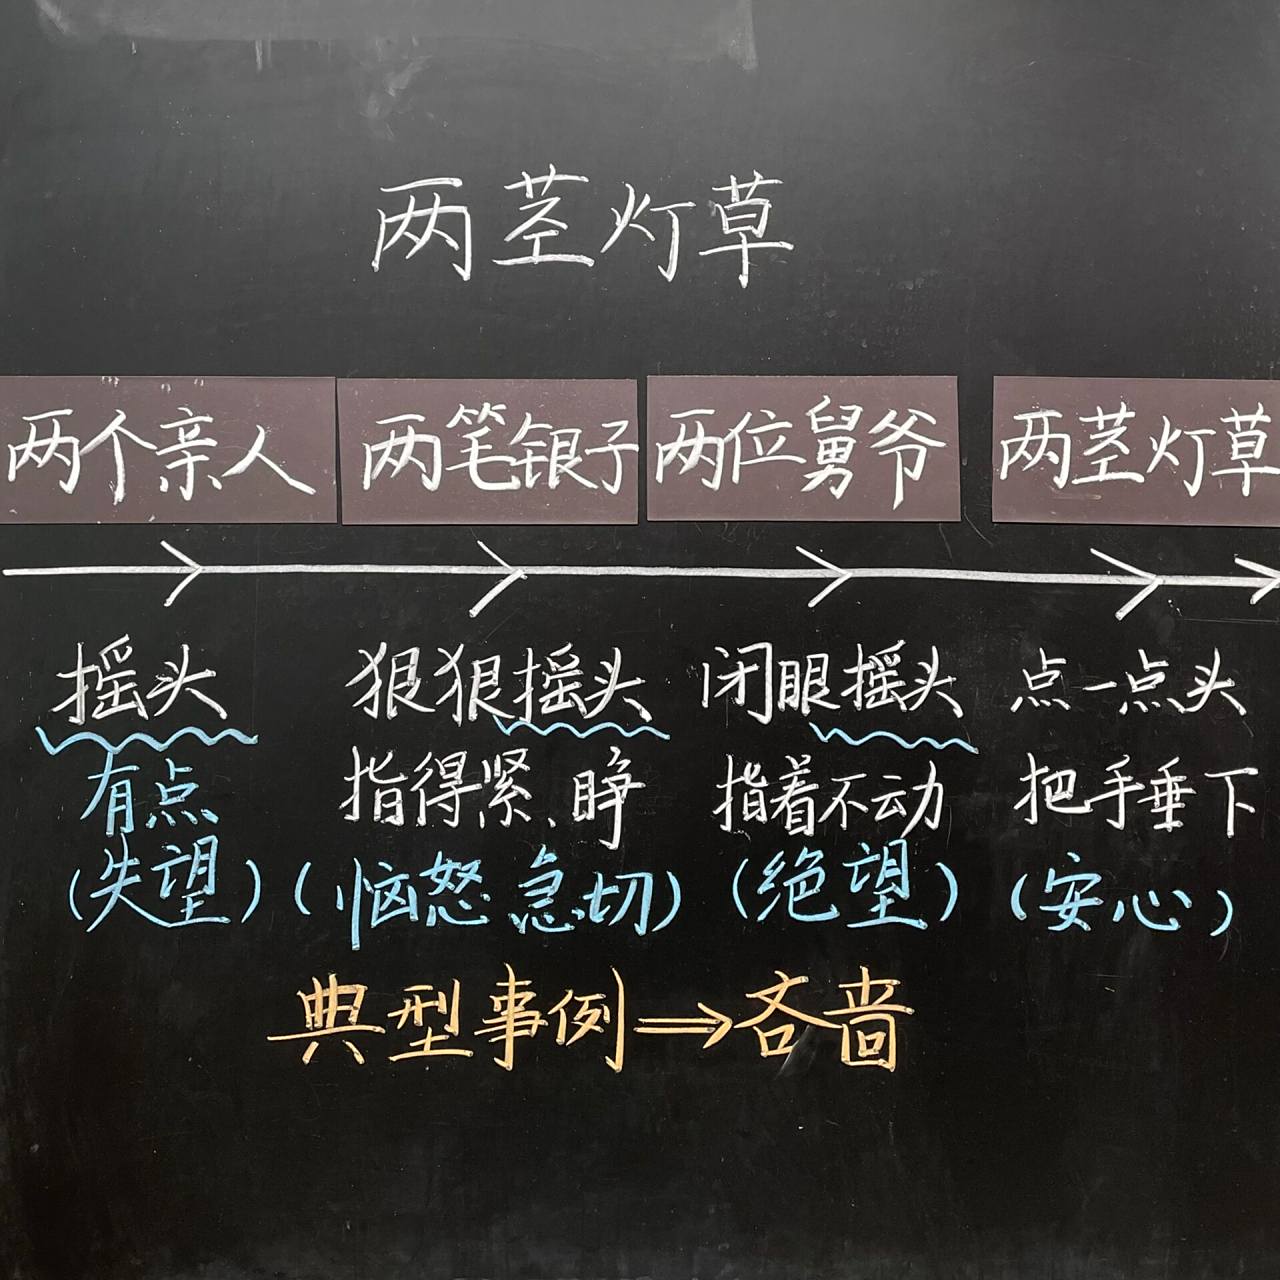 两茎灯草
两个亲人 两笔银子 两位舅爷 两茎灯草
摇头 狠狠摇头 闭眼摇头 点一点头
有点 指得紧、睁 指着不动 把手垂下
(失望) (恼怒 急切) (绝望) (安心)
典型事例⇒吝啬